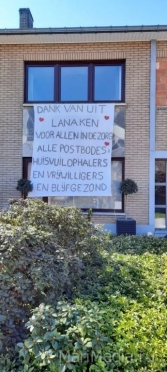 DANK VAN UIT
LANAKEN
VOOR ALLEN IN DE ZORG
ALLE POSTBODES,
HUISVUILOPHALERS
EN VRYWILLIGERS
EN BLYF GEZOND